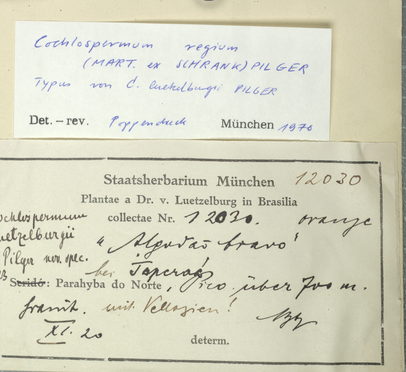 Cochlospermum regium
(MART. ex SCHRANK) PILGER
Typus von C. luetzelburgii PILGER
Det.-rev. Poppendieck München 1970
Staatsherbarium München 12030
Plantae a Dr. v. Luetzelburg in Brasilia
collectae Nr. 12030. orange
ochlospermum
uetzelburgii
Pilger nov. spec.
"Algodão bravo"
bei
Seridó: Parahyba do Norte, über 700 m.
granit. mit Vellozien!
XI. 20
determ.